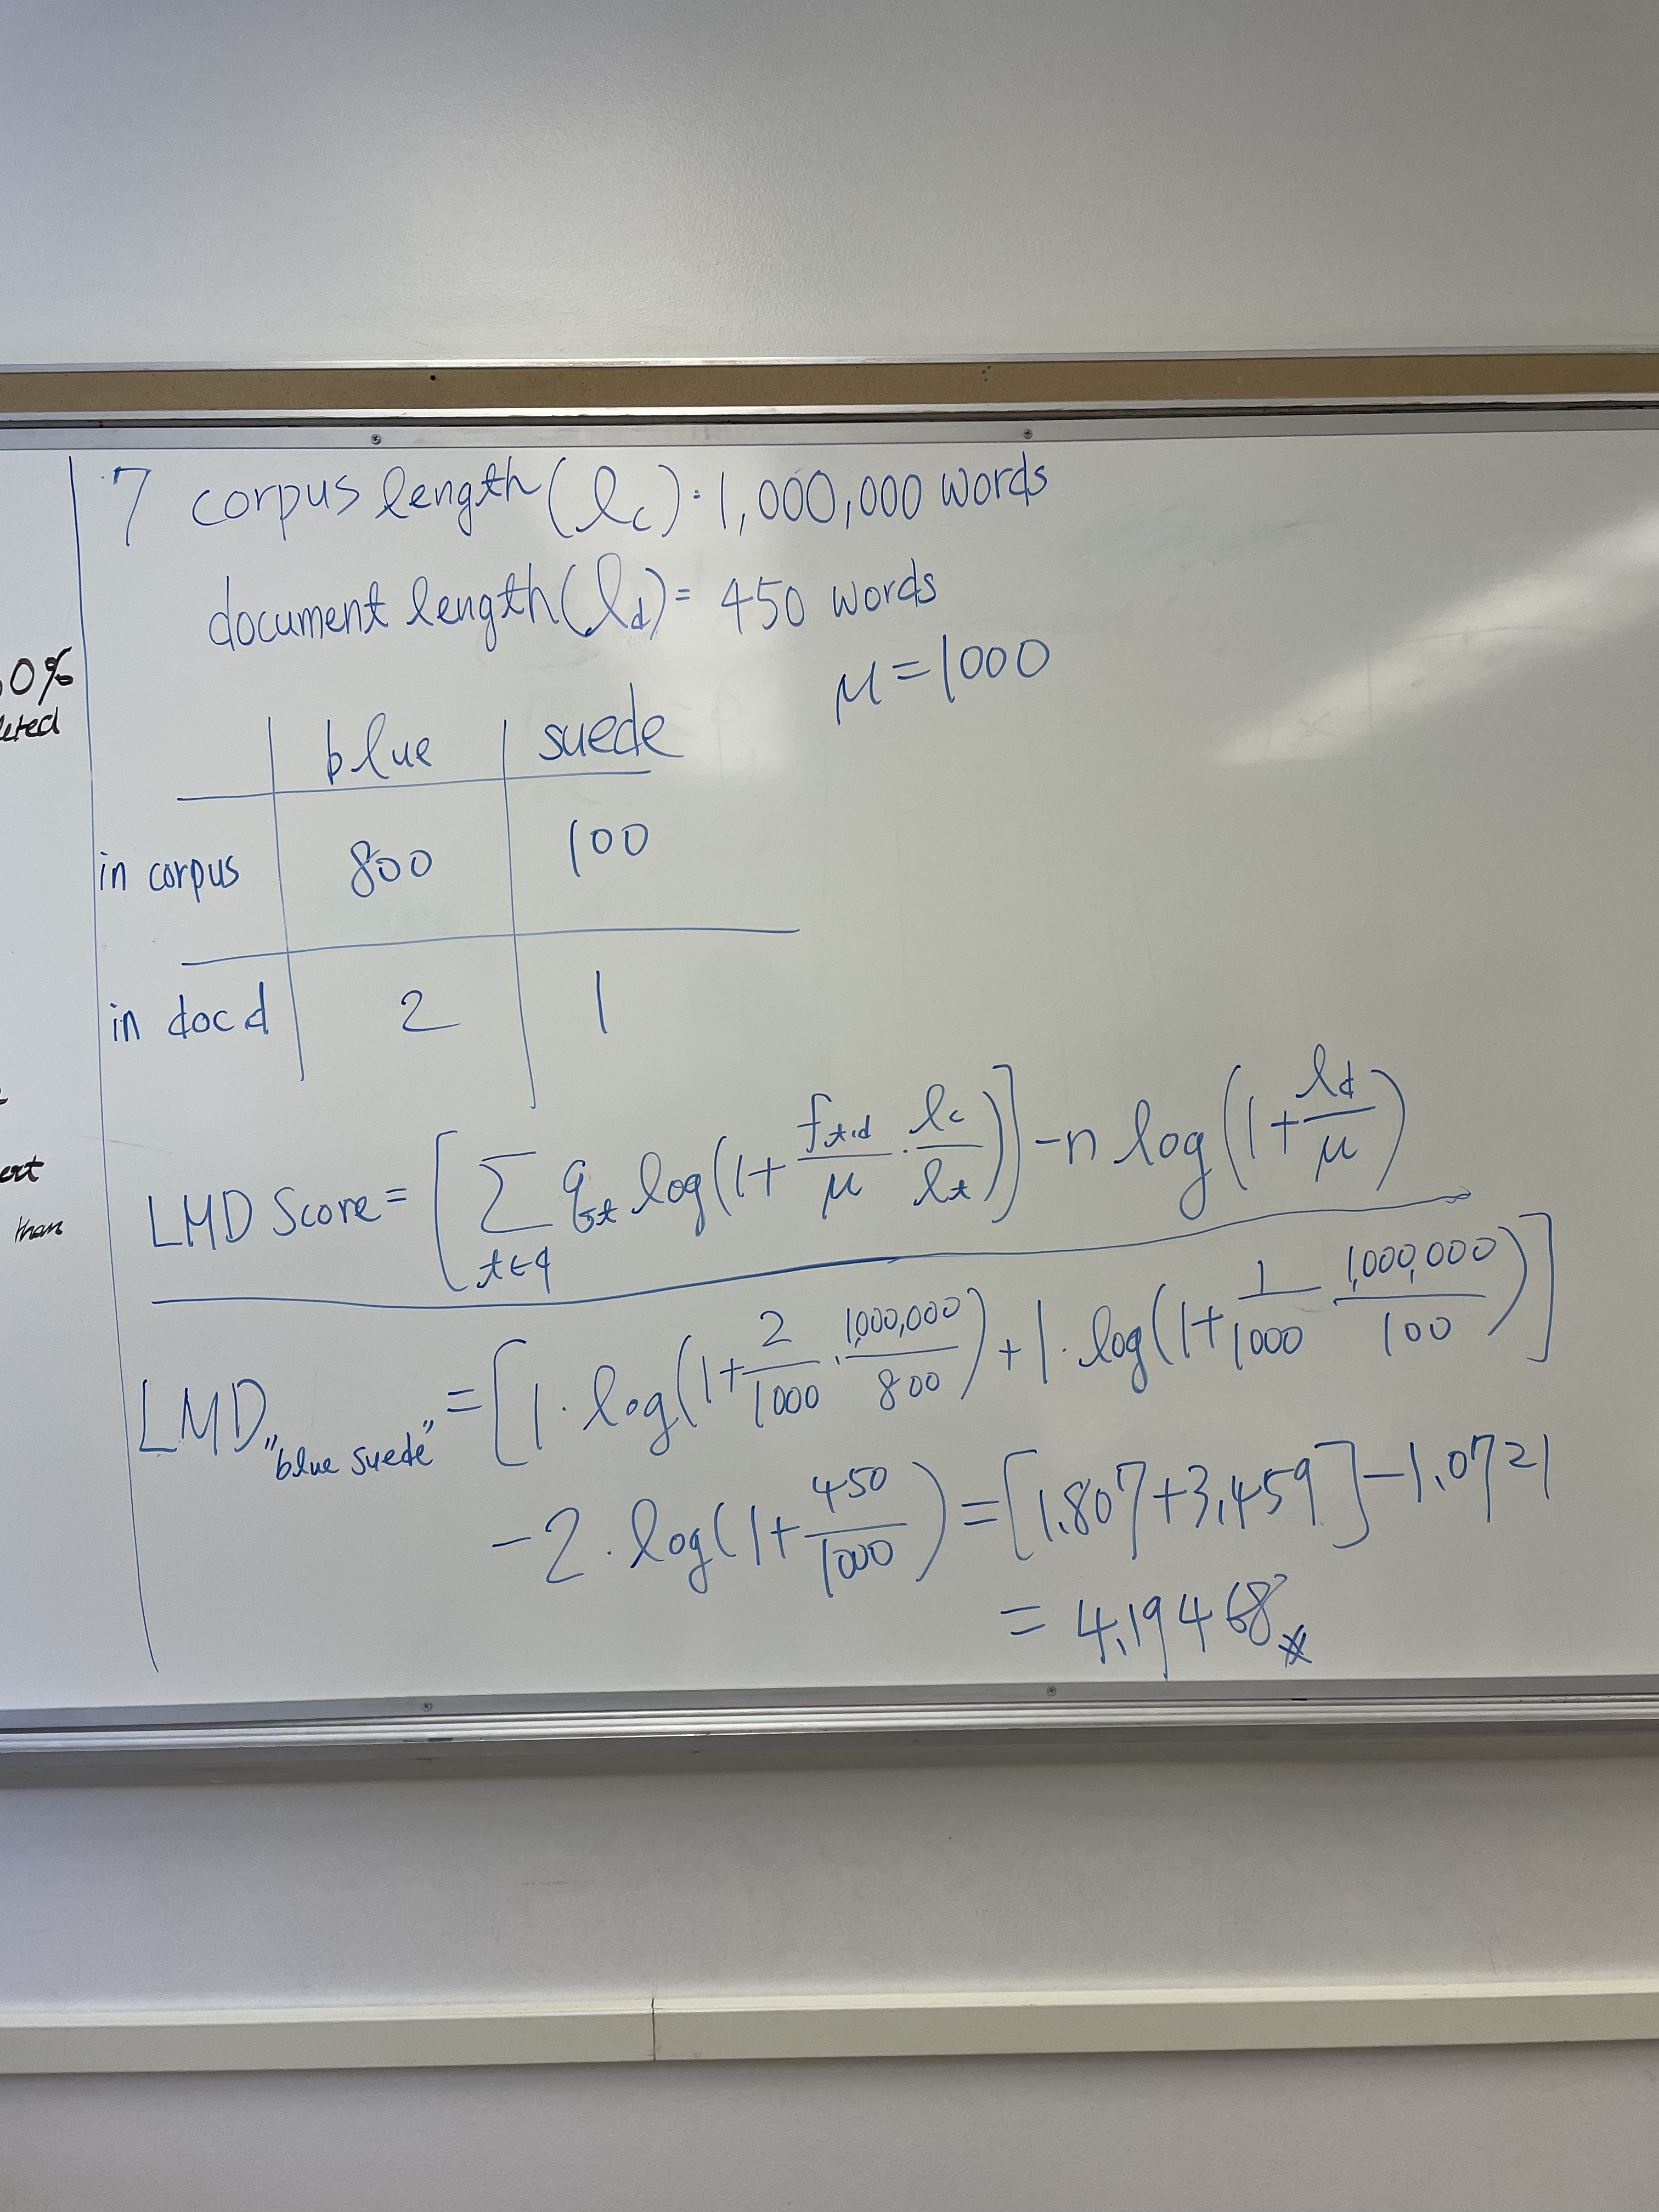 0%
7 corpus length (lc) : 1,000,000 words
document length (ld) = 450 words
μ = 1000
blue suede
in corpus 800 100
in doc d 2 1
than
LMD Score = [ Σ t∈q qt log(1 + ft,d/μ · lc/lt) ] - n log(1 + ld/μ)
LMD "blue suede" = [1 · log(1 + 2/1000 · 1,000,000/800) + 1 · log(1 + 1/1000 1,000,000/100)]
- 2 · log(1 + 450/1000) = [1.807 + 3.459] - 1.0721
= 4.19468